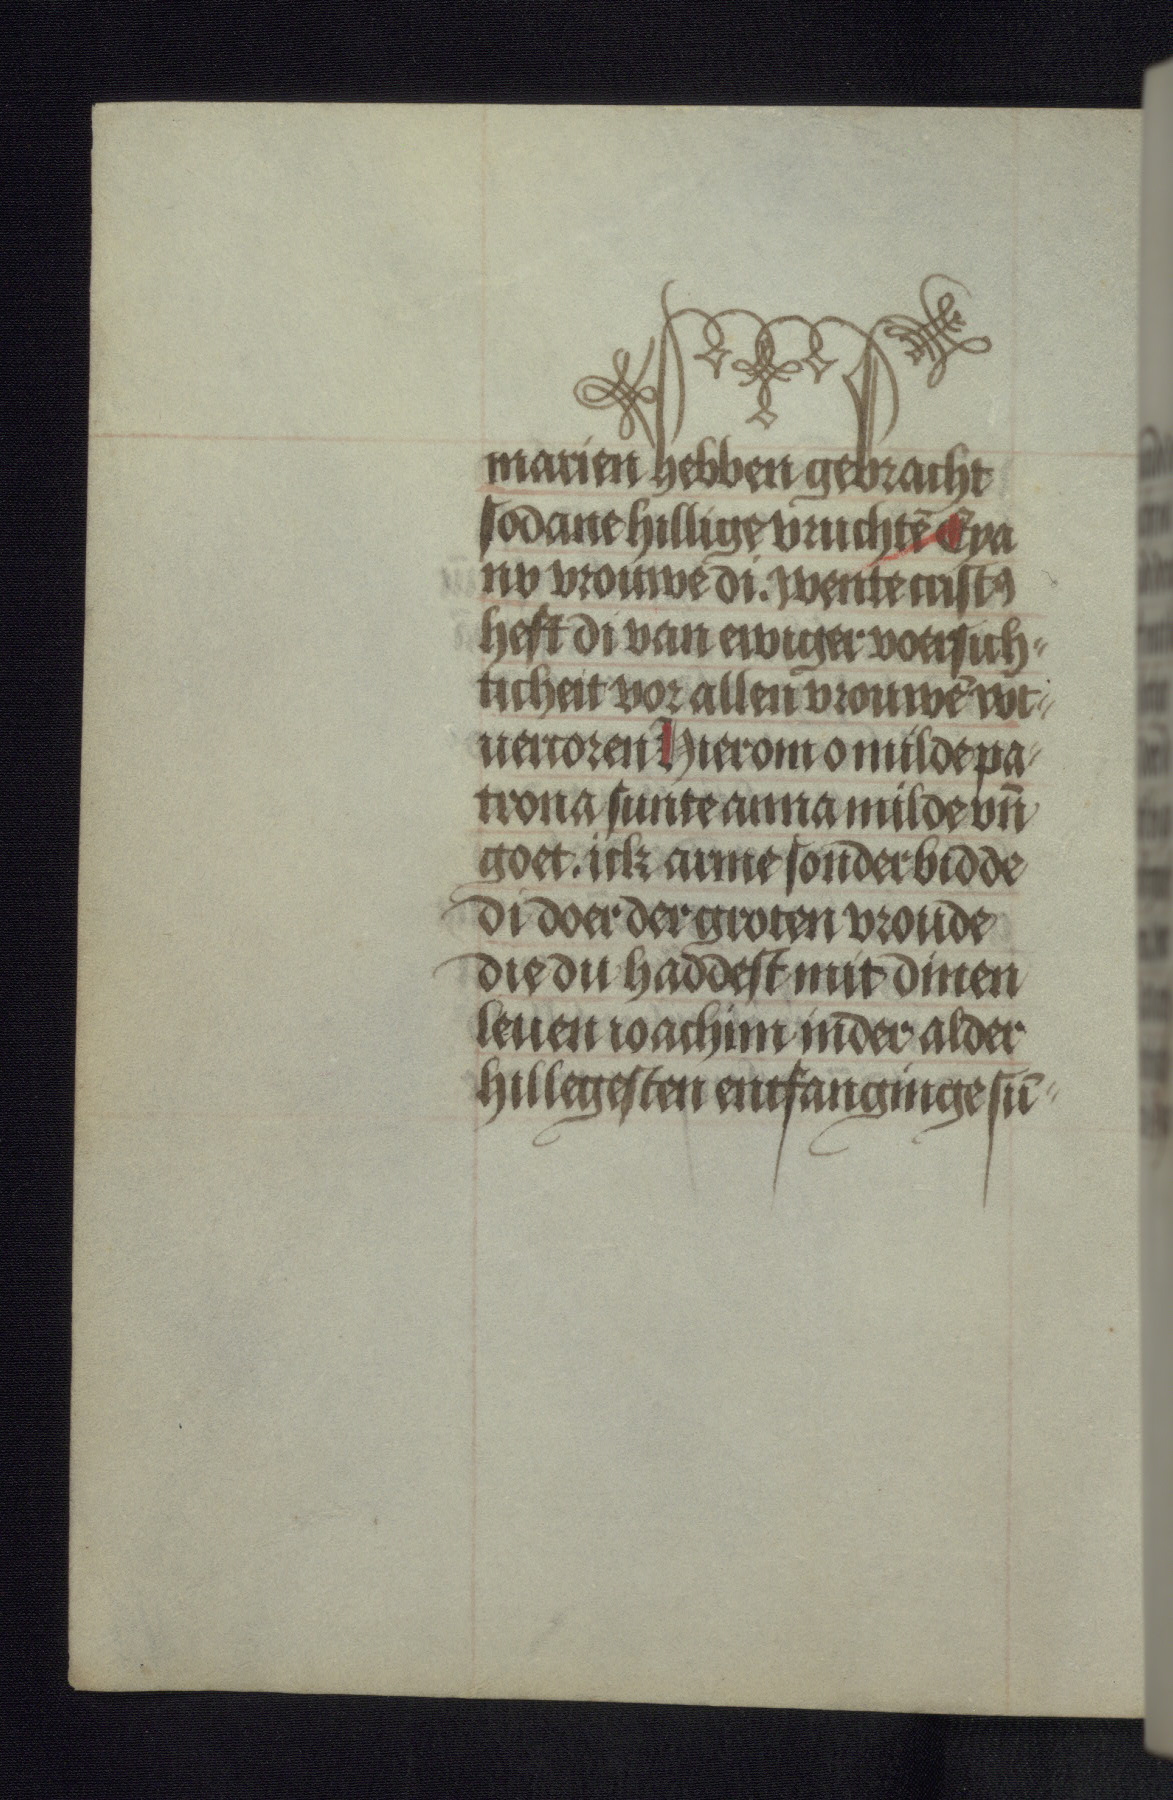 marien hebben gebracht
sodane hillige vruchtē Eya
nv vrouwe di. wente cristꝰ
heft di van ewiger voersich-
ticheit vor allen vrouwē wt-
uercoren Hierom o milde pa-
trona sunte anna milde vn̄
goet. ick arme sonder bidde
di doer der groten vroude
die du haddest mit dinen
leuen ioachim inder alder
hillegesten entfanginge sū-